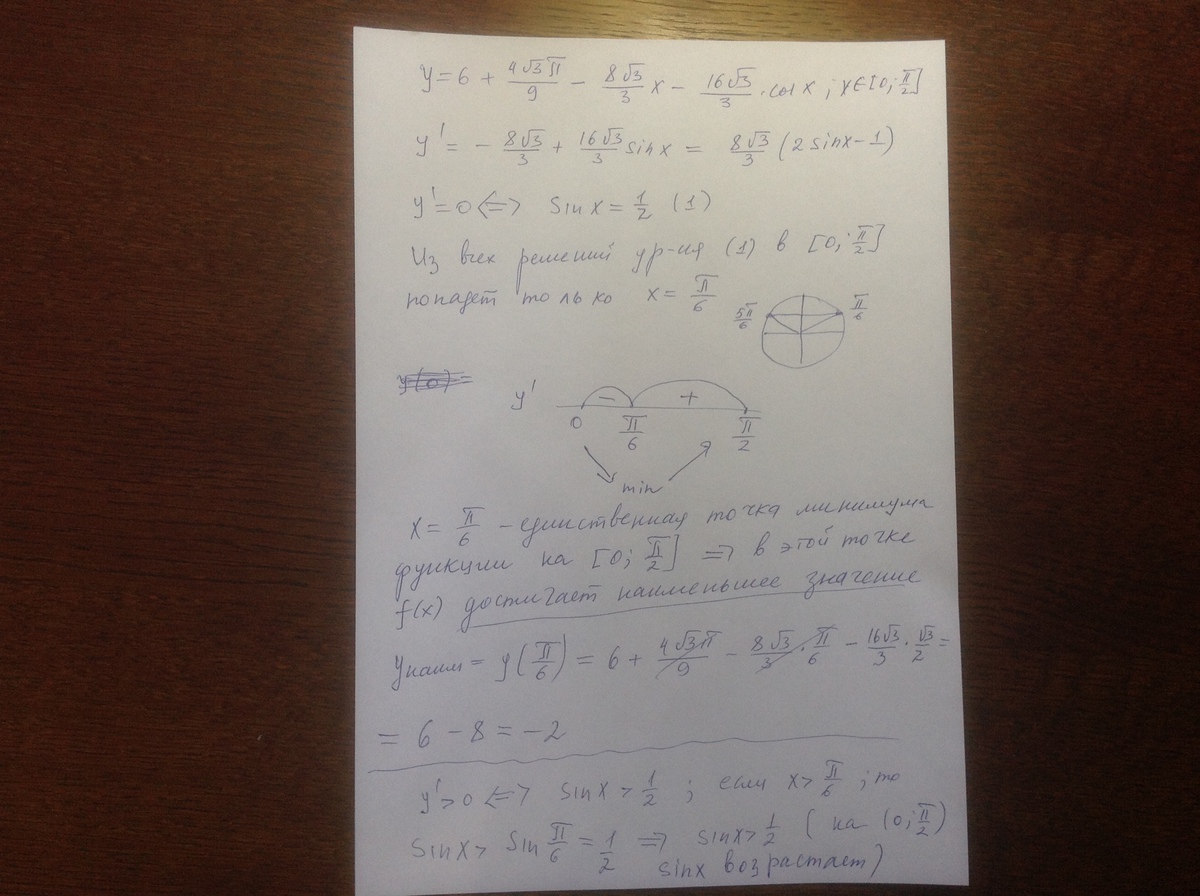 y = 6 + 4√3π/9 − 8√3/3 x − 16√3/3 · cos x ; x∈[0; π/2]
y' = − 8√3/3 + 16√3/3 sin x = 8√3/3 (2 sin x − 1)
y' = 0 <=> sin x = 1/2 (1)
Из всех решений ур-ия (1) в [0; π/2]
попадет только x = π/6
5π/6 π/6
y(0) =
y' − +
0 π/6 π/2
min
x = π/6 – единственная точка минимума
функции на [0; π/2] => в этой точке
f(x) достигает наименьшее значение
yнаим = y(π/6) = 6 + 4√3π/9 − 8√3/3 · π/6 − 16√3/3 · √3/2 =
= 6 − 8 = −2
y' > 0 <=> sin x > 1/2 ; если x > π/6 ; то
sin x > sin π/6 = 1/2 => sin x > 1/2 ( на (0; π/2)
sin x возрастает)